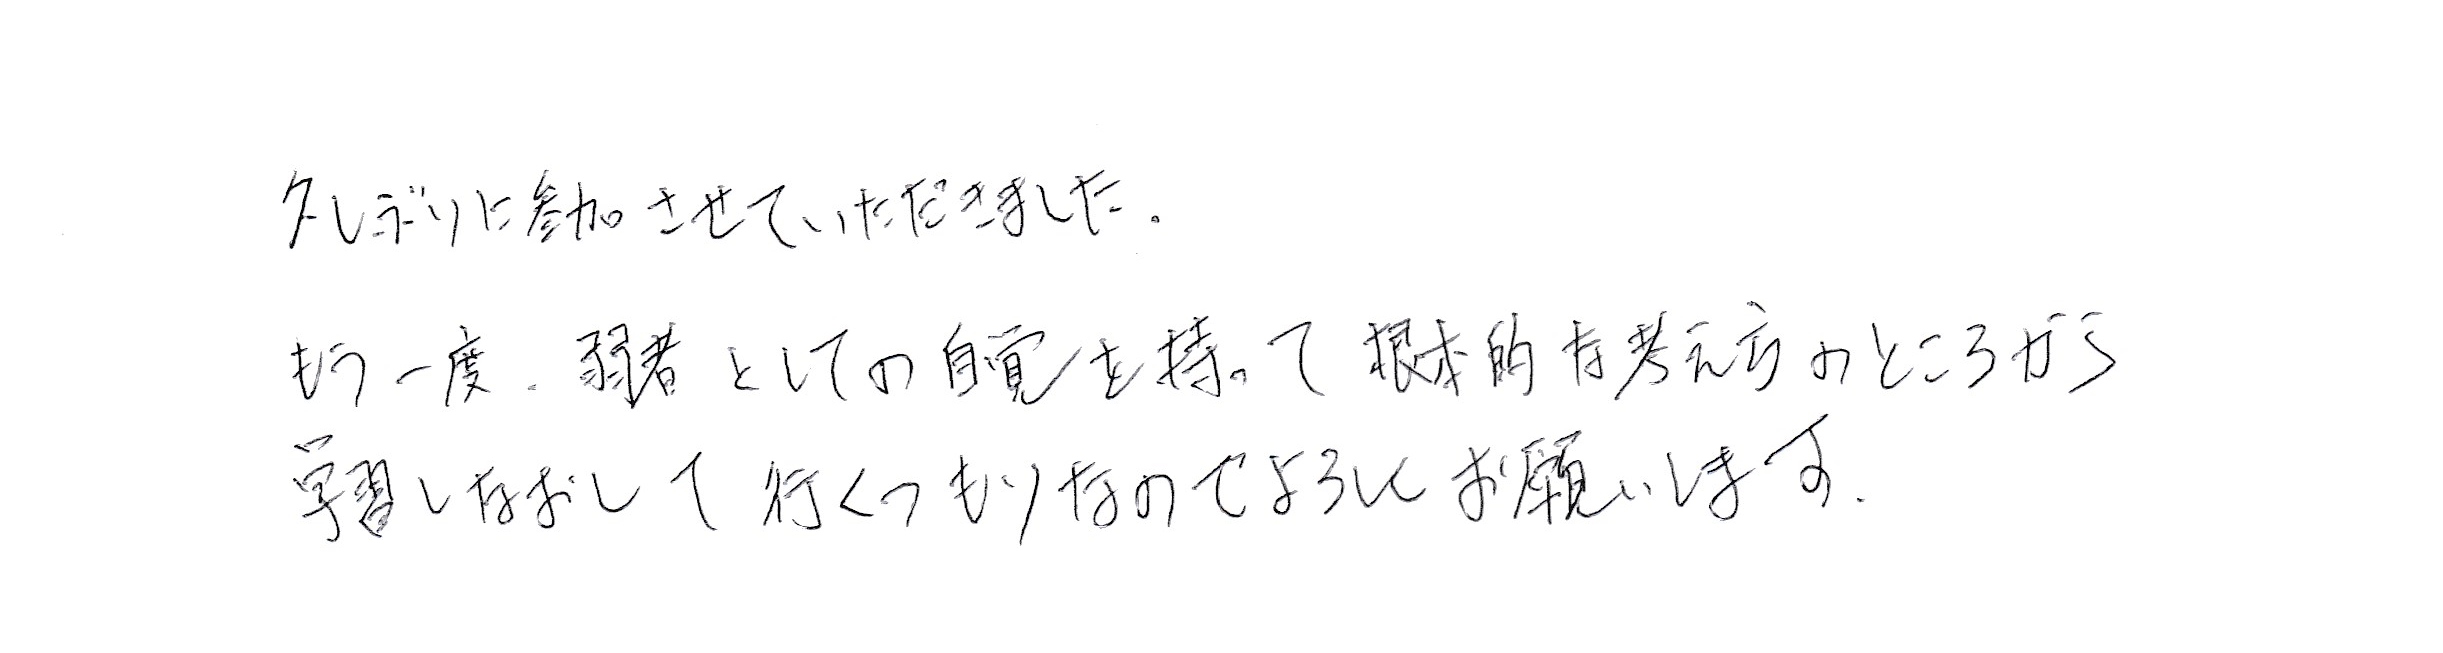 久しぶりに参加させていただきました。
もう一度、弱者としての自覚を持って根本的な考え方のところから
学習しなおして行くつもりなのでよろしくお願いします。